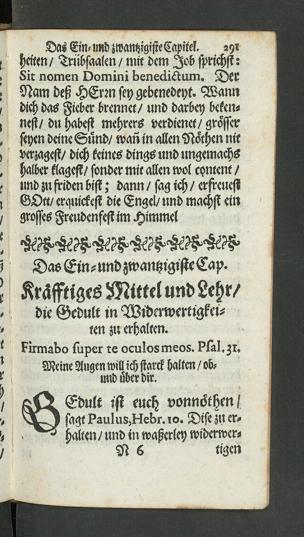 Das Ein- und zwantzigiste Capitel. 291
heiten / Trübsaalen / mit dem Job sprichst:
Sit nomen Domini benedictum. Der
Nam deß HErrn sey gebenedeyt. Wann
dich das Fieber brennet / und darbey beken-
nest / du habest mehrers verdienet / grösser
seyen deine Sünd / wañ in allen Nöthen nie
verzagest / dich keines dings und ungemachs
halber klagest / sonder mit allen wol content /
und zu friden bist ; dann / sag ich / erfreuest
GOtt / erquickest die Engel / und machst ein
grosses Freudenfest im Himmel
Das Ein- und zwantzigiste Cap.
Kräfftiges Mittel und Lehr /
die Gedult in Widerwertigkei-
ten zu erhalten.
Firmabo super te oculos meos. Psal. 31.
Meine Augen will ich starck halten / ob-
und über dir.
GEdult ist euch vonnöthen /
sagt Paulus, Hebr. 10. Dise zu er-
halten / und in waßerley widerwer-
N 6 tigen